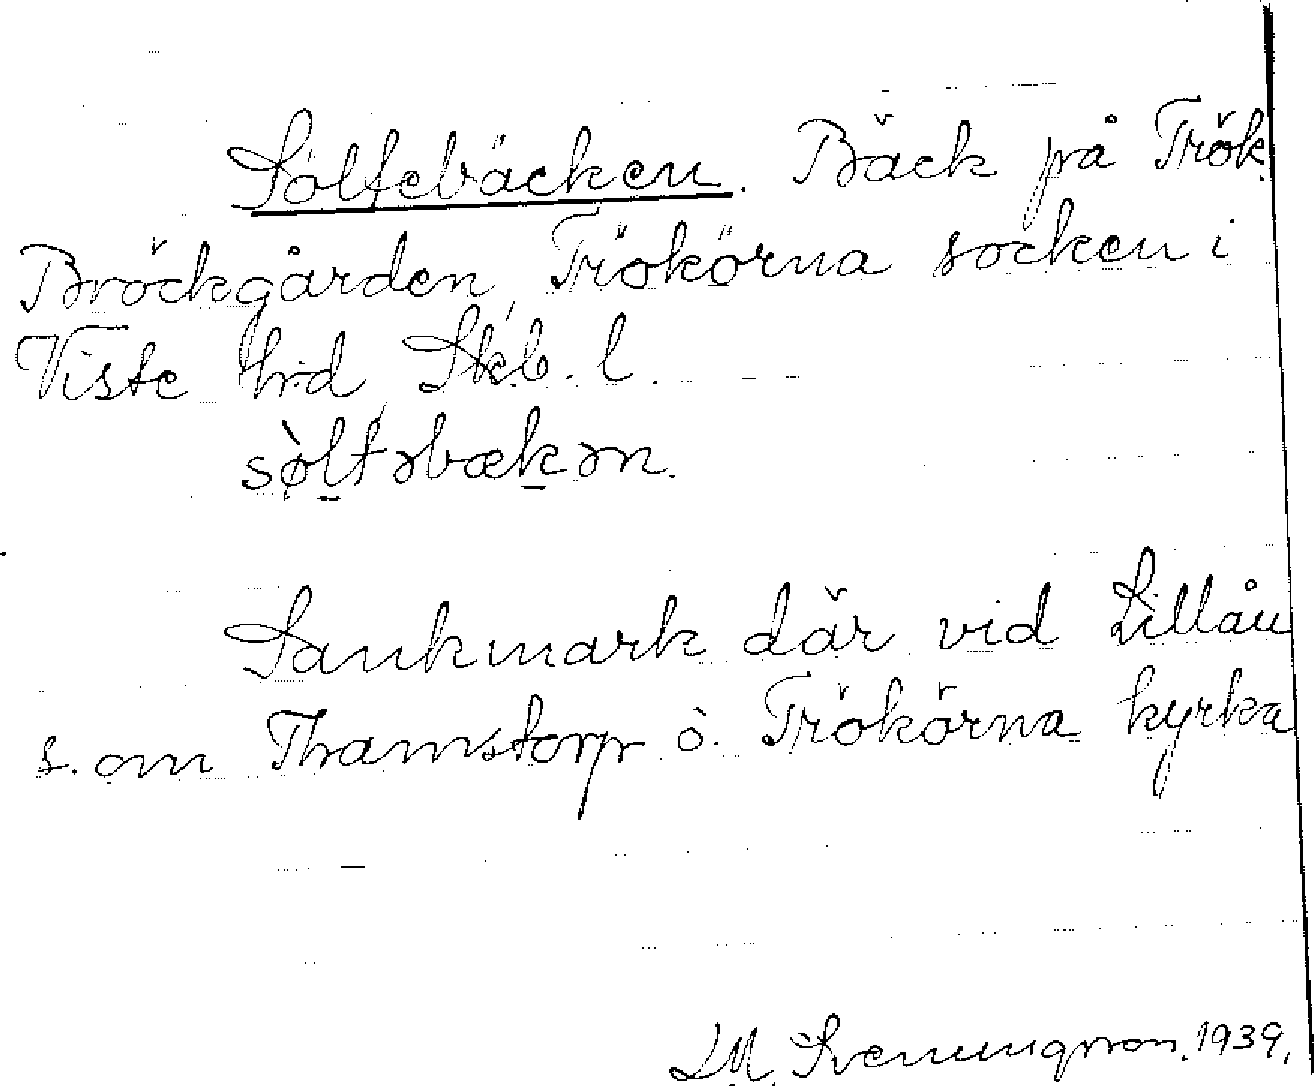 Sölfebäcken. Bäck på Trök.
Bröckgården, Trökörna socken i
Viste hd, Skb. l.
sø̀lfəbækən.
Sankmark där vid Lillån
s. om Thamstorp ö. Trökörna kyrka
Svenungsson. 1939.